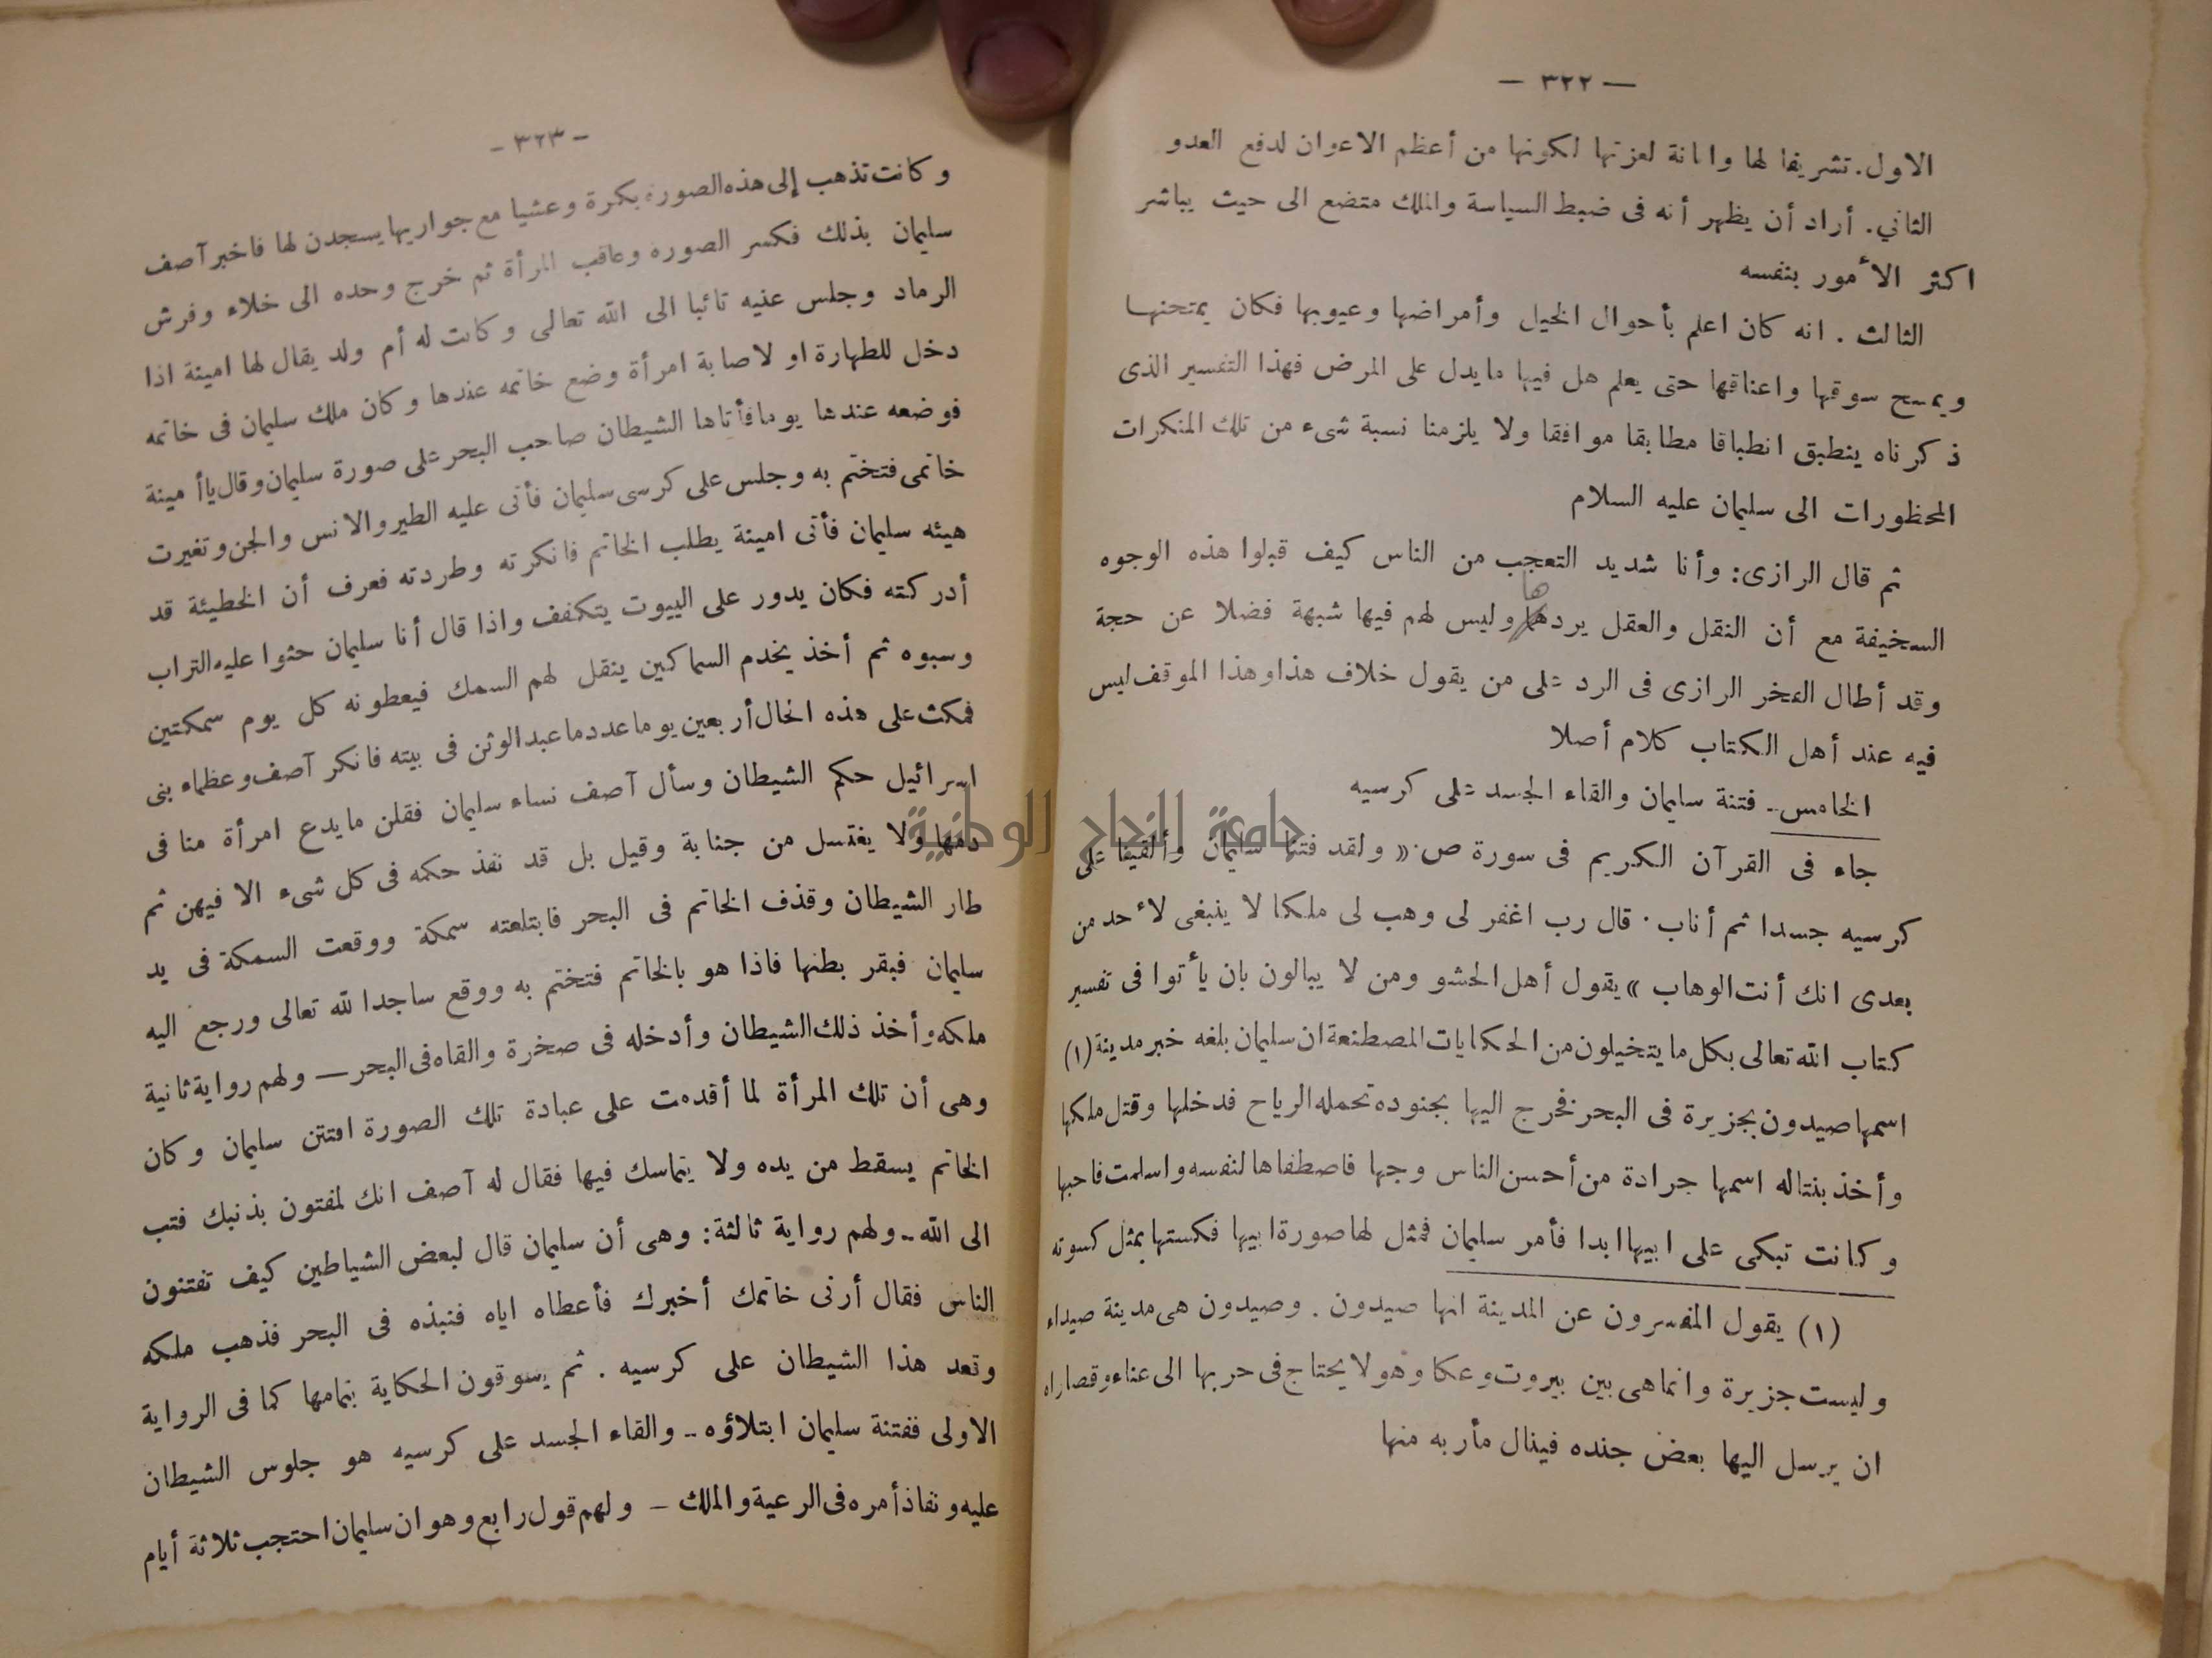 — ٣٢٢ —
الاول. تشريفا لها وابانة لعزتها لكونها من أعظم الاعوان لدفع العدو
الثاني. أراد أن يظهر أنه فى ضبط السياسة والملك متضع الى حيث يباشر
اكثر الأمور بنفسه
الثالث . انه كان اعلم بأحوال الخيل وأمراضها وعيوبها فكان يمتحنها
ويمسح سوقها واعناقها حتى يعلم هل فيها مايدل على المرض فهذا التفسير الذى
ذكرناه ينطبق انطباقا مطابقا موافقا ولا يلزمنا نسبة شىء من تلك المنكرات
المحظورات الى سليمان عليه السلام
ثم قال الرازى: وأنا شديد التعجب من الناس كيف قبلوا هذه الوجوه
السخيفة مع أن النقل والعقل يردها وليس لهم فيها شبهة فضلا عن حجة
وقد أطال الفخر الرازى فى الرد على من يقول خلاف هذا وهذا الموقف ليس
فيه عند أهل الكتاب كلام أصلا
الخامس.. فتنة سليمان والقاء الجسد على كرسيه
جاء فى القرآن الكريم فى سورة ص. « ولقد فتنا سليمان وألقينا على
كرسيه جسدا ثم أناب. قال رب اغفر لى وهب لى ملكا لا ينبغى لأحد من
بعدى انك أنت الوهاب » يقول أهل الحشو ومن لا يبالون بان يأتوا فى تفسير
كتاب الله تعالى بكل مايتخيلون من الحكايات المصطنعة ان سليمان بلغه خبر مدينة (١)
اسمها صيدون بجزيرة فى البحر فخرج اليها بجنوده تحمله الرياح فدخلها وقتل ملكها
وأخذ بنتاله اسمها جرادة من أحسن الناس وجها فاصطفاها لنفسه واسلمت فاحبها
وكانت تبكى على ابيها ابدا فأمر سليمان فمثل لها صورة ابيها فكستها بمثل كسوته
(١) يقول المفسرون عن المدينة انها صيدون . وصيدون هى مدينة صيداء
وليست جزيرة وانما هى بين بيروت وعكا وهو لا يحتاج فى حربها الى عناء وقصاراه
ان يرسل اليها بعض جنده فينال مأربه منها
- ٣٢٣ -
وكانت تذهب إلى هذه الصورة بكرة وعشيا مع جواريها يسجدن لها فاخبر آصف
سليمان بذلك فكسر الصورة وعاقب المرأة ثم خرج وحده الى خلاء وفرش
الرماد وجلس عليه تائبا الى الله تعالى وكانت له أم ولد يقال لها امينة اذا
دخل للطهارة او لاصابة امرأة وضع خاتمه عندها وكان ملك سليمان فى خاتمه
فوضعه عندها يوما فأتاها الشيطان صاحب البحر على صورة سليمان وقال يا أمينة
خاتمى فتختم به وجلس على كرسى سليمان فأتى عليه الطير والانس والجن وتغيرت
هيئه سليمان فأتى امينة يطلب الخاتم فانكرته وطردته فعرف أن الخطيئة قد
أدركته فكان يدور على البيوت يتكفف واذا قال أنا سليمان حثوا عليه التراب
وسبوه ثم أخذ يخدم السماكين ينقل لهم السمك فيعطونه كل يوم سمكتين
فمكث على هذه الحال أربعين يوما عدد ما عبد الوثن فى بيته فانكر آصف وعظماء بنى
اسرائيل حكم الشيطان وسأل آصف نساء سليمان فقلن مايدع امرأة منا فى
دمها ولا يغتسل من جنابة وقيل بل قد نفذ حكمه فى كل شىء الا فيهن ثم
طار الشيطان وقذف الخاتم فى البحر فابتلعته سمكة ووقعت السمكة فى يد
سليمان فبقر بطنها فاذا هو بالخاتم فتختم به ووقع ساجدا لله تعالى ورجع اليه
ملكه وأخذ ذلك الشيطان وأدخله فى صخرة والقاه فى البحر — ولهم رواية ثانية
وهى أن تلك المرأة لما أقدمت على عبادة تلك الصورة افتتن سليمان وكان
الخاتم يسقط من يده ولا يتماسك فيها فقال له آصف انك لمفتون بذنبك فتب
الى الله.. ولهم رواية ثالثة: وهى أن سليمان قال لبعض الشياطين كيف تفتنون
الناس فقال أرنى خاتمك أخبرك فأعطاه اياه فنبذه فى البحر فذهب ملكه
وقعد هذا الشيطان على كرسيه . ثم يسوقون الحكاية بتمامها كما فى الرواية
الاولى ففتنة سليمان ابتلاؤه .. والقاء الجسد على كرسيه هو جلوس الشيطان
عليه ونفاذ أمره فى الرعية والملك — ولهم قول رابع وهو ان سليمان احتجب ثلاثة أيام
جامعة النجاح الوطنية